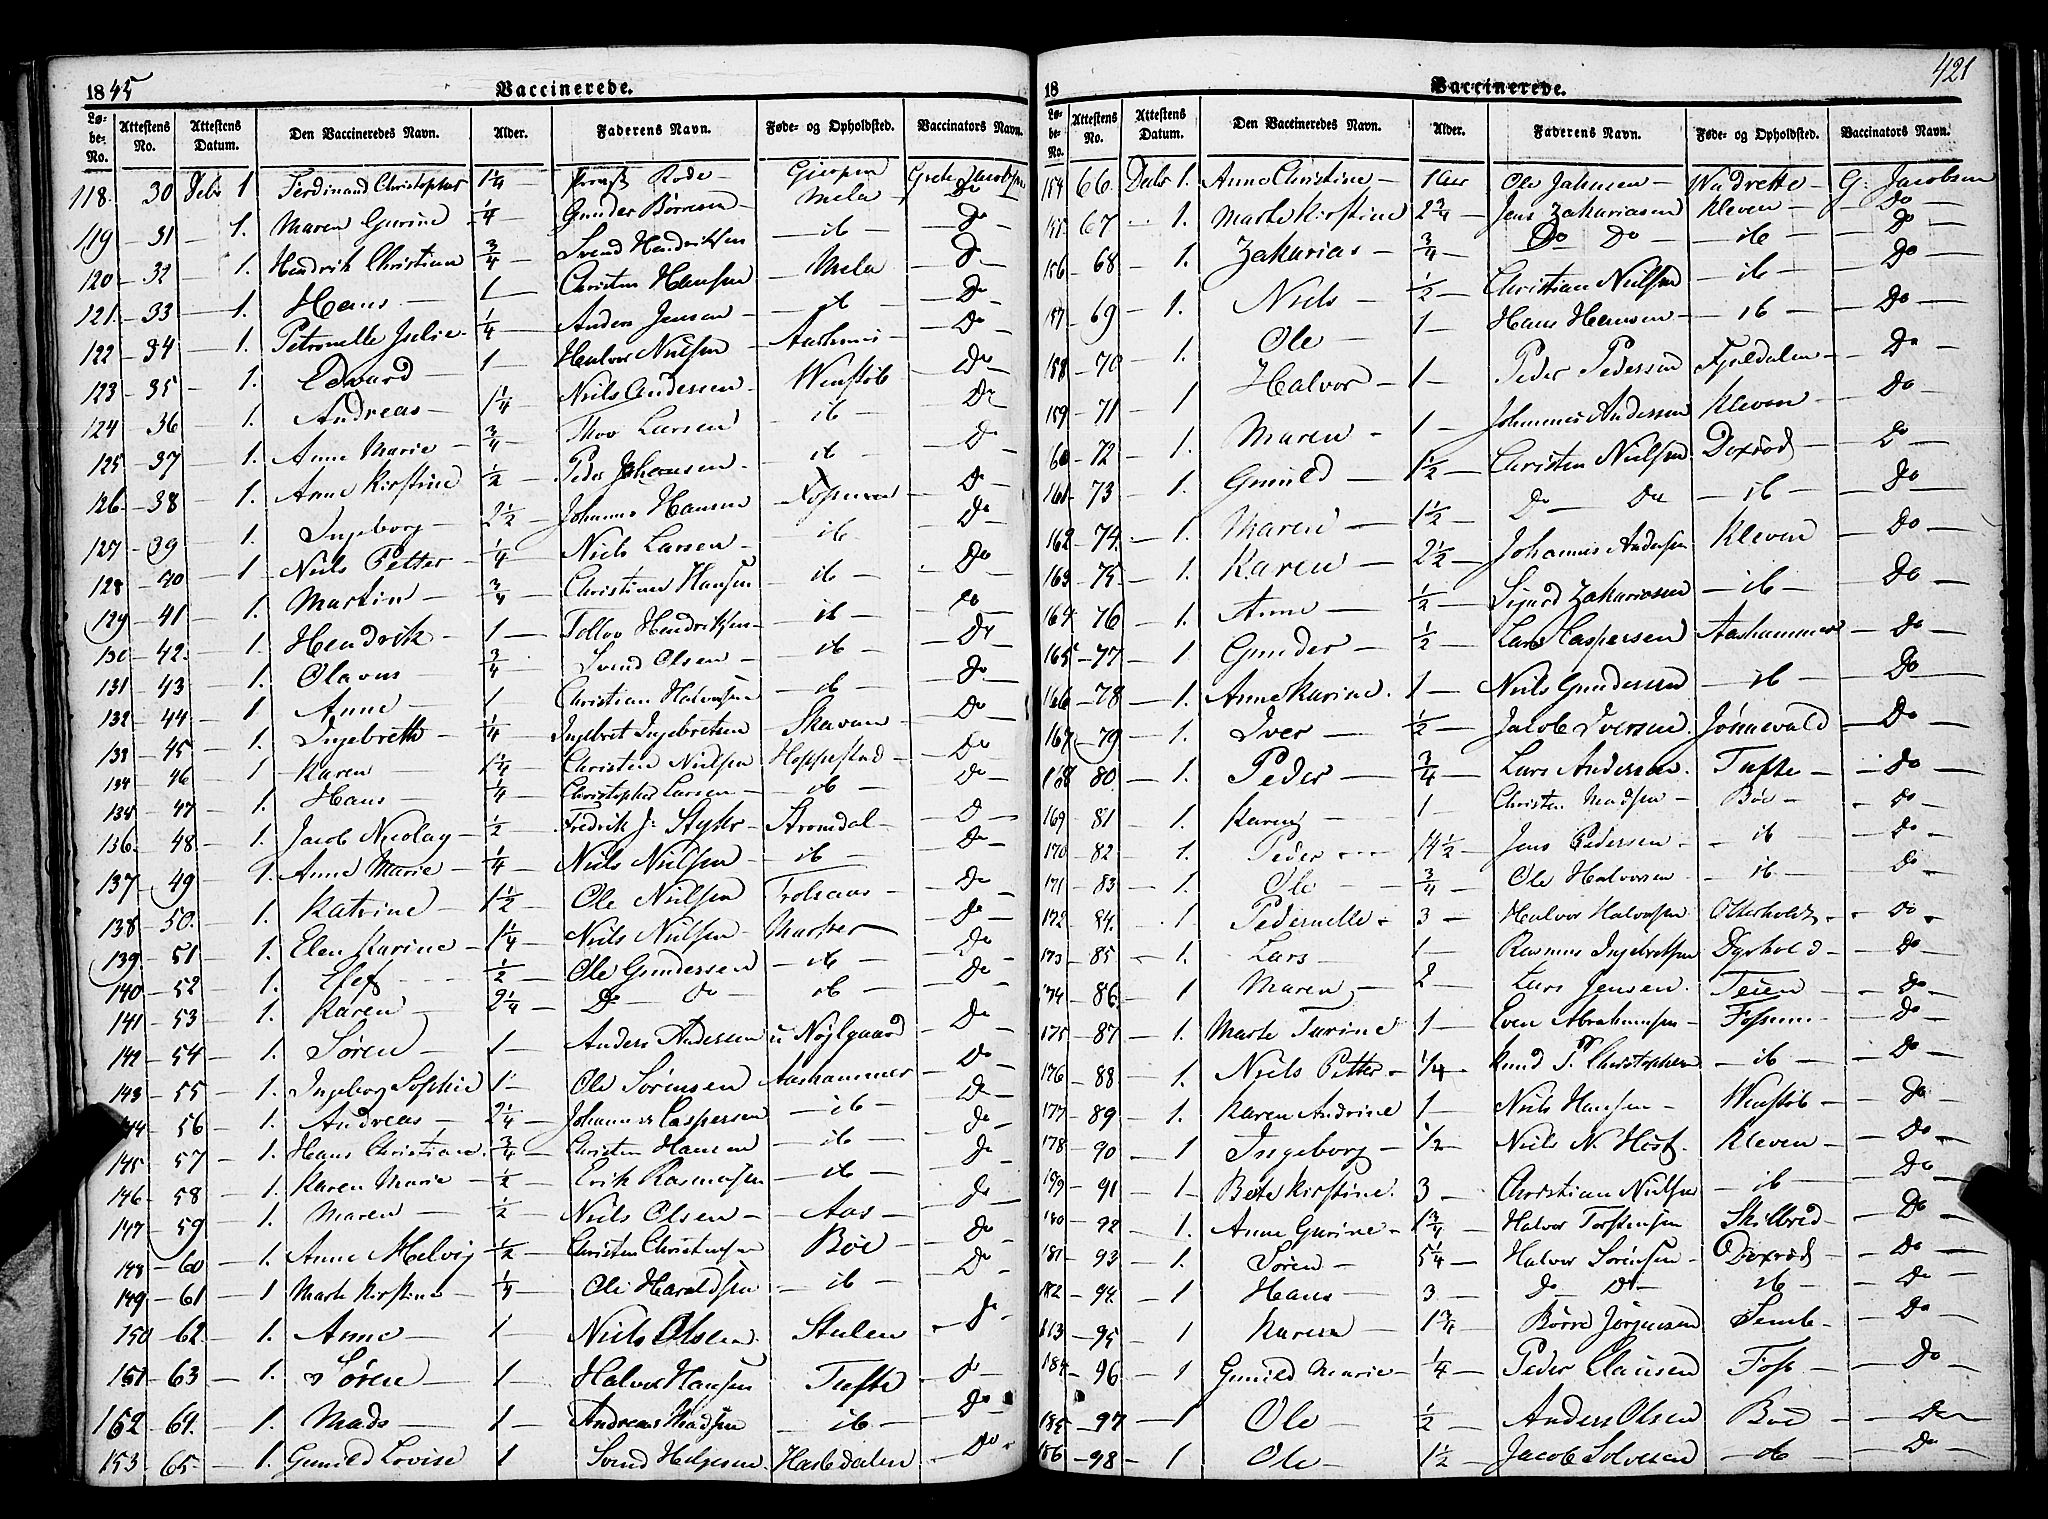 1845 Vaccinerede.
Løbe-No. Attestens No. Attestens Datum. Den Vaccineredes Navn. Alder. Faderens Navn. Føde- og Opholdsted. Vaccinators Navn.
118. 30 Debr 1 Ferdinand Christopher 1¼ Rode Gjerpen Grete Jacobsen
119 31 1. Maren Gurine ¼ Gunder Börresen Mela Do
120 32 1. Hendrik Christian ¾ Svend Hendriksen ib Do
121. 33 1. Hans 1 Christen Hansen Mela Do
122 34 1. Petronelle Julie ¼ Anders Jensen ib Do
123 35 1. Edvard 1 Halvor Nielsen Do
124 36 1. Andreas 1¼ Niels Andersen Wenstöb Do
125 37 1. Anne Marie ¾ Thor Larsen ib Do
126. 38 1. Anne Kirstine ½ Peder Johansen ib Do
127 39 1. Ingeborg 2½ Johannes Hansen Do
128 40 1 Niels Petter ¼ Niels Larsen ib Do
129 41 1. Martin ¾ Christian Hansen ib Do
130 42. 1. Hendrik 1 Tollov Hendriksen ib Do
131 43 1. Olavus ¾ Svend Olsen ib Do
132 44 1 Anne 1 Christian Halvorsen ib Do
133 45 1. Ingebreth ¼ Ingebret Ingebretsen Skavan Do
134 46 1 Karen 1¼ Christen Nielsen Hoppestad Do
135 47 1. Hans ¼ Christopher Larsen ib Do
136. 48 1. Jacob Nicolay ½ Fredrik J: Styhr Stromdal Do
137 49 1. Anne Marie ¼ Niels Nielsen ib Do
138 50. 1. Katrine 1½ Ole Nielsen Trolsaas Do
139 51 1. Elen Karine 1¼ Niels Nielsen Marker Do
140 52 1. ½ Ole Gundersen ib Do
141 53 1. Karen 2¼ Do Do ib Do
142 54 1. Sören 1 Anders Andersen u Nöjlgaard Do
143 55 1. Ingeborg Sophie 1 Ole Sörensen Aashammer Do
144 56 1. Andreas 2¼ Johannes Caspersen ib Do
145 57 1. Hans Christian ¾ Christen Hansen ib Do
146 58 1. Karen Marie ½ Erik Rasmusen ib Do
147 59 1. Maren ½ Niels Olsen Aas Do
148 60 1. Anne Helvig ½ Christen Christensen Böe Do
149 61 1 Marte Kirstine ¼ Ole Haraldsen ib Do
150 62. 1. Anne 1 Niels Olsen Stulen Do
151 63 1. Sören 1 Halvor Hansen Tufte Do
152 64. 1. Mads 1 Andreas Madsen ib Do
153 65 1. Gunild Lovise 1 Svend Helgesen Hasledalen Do
421
18 Vaccinerede.
Løbe-No. Attestens No. Attestens Datum. Den Vaccineredes Navn. Alder. Faderens Navn. Føde- og Opholdsted. Vaccinators Navn.
154 66. Debr 1. Anne Christine 1 Aar Ole Johnsen G: Jacobsen
155 67 1. Marte Kirstine 2¾ Jens Zakariasen Kleven Do
156 68 1. Zakarias ¾ Do Do ib Do
157 69 1. Niels ½ Christian Nielsen ib Do
158 70 1. Ole 1 Hans Hansen ib Do
159 71 1 Halvor 1 Peder Pedersen Fjeldalen Do
160 72 1. Maren 1 Johannes Andersen Kleven Do
161 73 1. Gunild 1½ Christen Nielsen Doxröd Do
162 74. 1. Maren 1½ Do Do ib Do
163 75 1. Karen 2½ Johannes Andersen Kleven Do
164 76 1. Anne ½ Sigurd Zakariasen ib Do
165 77 1 Gunder ½ Lars Caspersen Aashammer Do
166 78 1. Anne Karine 1 Niels Gundersen ib Do
167 79 1. Iver ½ Jacob Iversen Jönnevald Do
168 80. 1. Peder ¾ Lars Andersen Tufte Do
169 81 1. Karen 1 Christen Madsen Böe Do
170 82 1. Peder 14½ Jens Pedersen ib Do
171 83 1. Ole ¾ Ole Halvorsen ib Do
172 84. 1 Pedernelle 3 Halvor Halvorsen Otterholt Do
173 85 1. Lars 1 Rasmus Ingebretsen Dyrhold Do
174 86 1 Maren 2 Lars Jensen Teien Do
175 87 1. Marte Turine 1 Even Abrahamsen Fossum Do
176 88 1. Niels Petter ¼ Knud P. Christophersen ib Do
177 89 1. Karen Andrine 1 Niels Hansen Wenstöb Do
178 90 1 Ingeborg ½ Niels N. Höst Kleven Do
179 91 1 Berte Kirstine 3 Christian Nielsen ib Do
180 92 1. Anne Gurine 1¾ Halvor Torstensen Skilbred Do
181 93 1. Sören 5¼ Halvor Sörensen Doxröd Do
182 94. 1 Hans 3 Do Do ib Do
183 95 1 Karen 1¾ Börre Jörgensen Semb Do
184 96 1 Gunild Marie ¼ Peder Clausen Foss Do
185 97 1 Ole ½ Anders Olsen Böe Do
186 98 1 Ole 1½ Jacob Solvesen ib Do